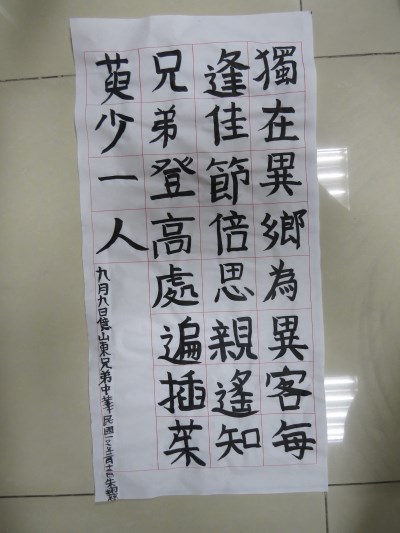 獨在異鄉為異客每
逢佳節倍思親遙知
兄弟登高處遍插茱
萸少一人
九月九日憶山東兄弟中華民國